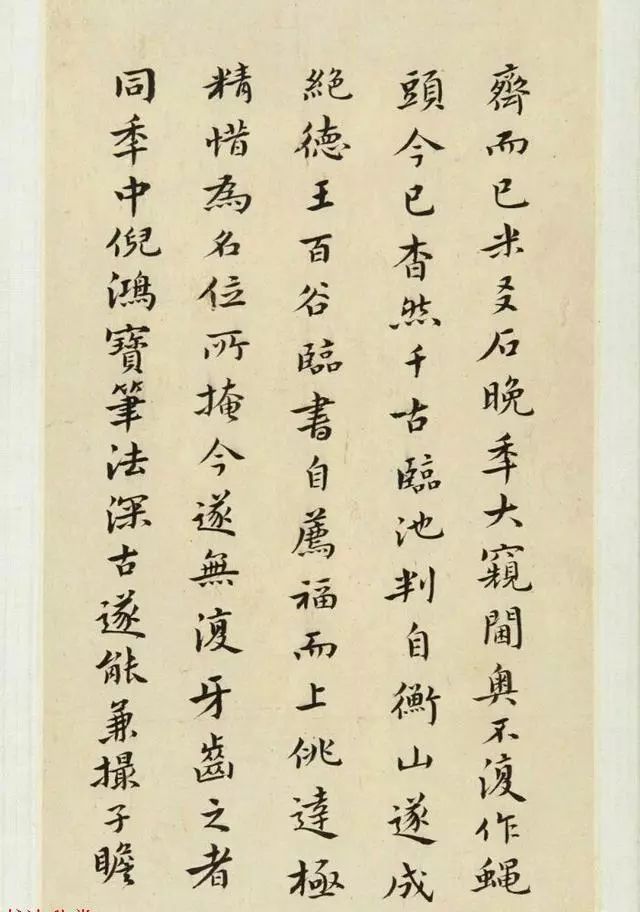 齊而已米友石晚季大窺閫奥不復作蠅
頭今已杳然千古臨池判自衡山遂成
絶德王百谷臨書自薦福而上佻達極
精惜為名位所掩今遂無復牙齒之者
同季中倪鴻寶筆法深古遂能兼撮子瞻